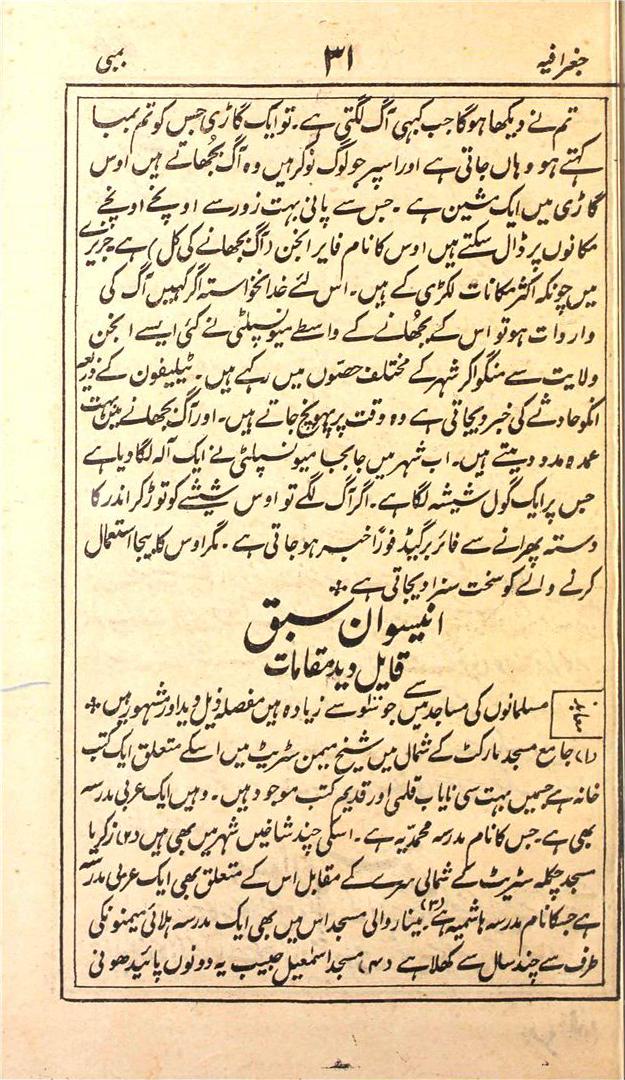 جغرافیہ ۳۱ بمبئی
تم نے دیکھا ہوگا جب کہیں آگ لگتی ہے۔ تو ایک گاڑی جس کو تم بمبا
کہتے ہو وہاں جاتی ہے اور اسپر جو لوگ نوکر ہیں وہ آگ بُجھاتے ہیں اوس
گاڑی میں ایک مشین ہے۔ جس سے پانی بہت زور سے اونچے اونچے
مکانوں پر ڈال سکتے ہیں اوس کا نام فایر انجن (آگ بجھانے کی کل) ہے۔ جزیرے
میں چونکہ اکثر مکانات لکڑی کے ہیں۔ اس لئے خدانخواستہ اگر کہیں آگ کی
واردات ہو تو اس کے بجھانے کے واسطے میونسپلٹی نے کئی ایسے انجن
ولایت سے منگوا کر شہر کے مختلف حصّوں میں رکہے ہیں۔ ٹیلیفون کے ذریعہ
انکو حادثے کی خبر دیجاتی ہے وہ وقت پر پہونچ جاتے ہیں۔ اور آگ بجھانے میں بہت
عمدہ مدد دیتے ہیں۔ اب شہر میں جابجا میونسپلٹی نے ایک آلہ لگا دیا ہے
جس پر ایک گول شیشہ لگا ہے۔ اگر آگ لگے تو اوس شیشے کو توڑ کر اندر کا
دستہ پھرانے سے فائر برگیڈ فوراً خبر ہو جاتی ہے۔ مگر اوس کا بیجا استعمال
کرنے والے کو سخت سزا دیجاتی ہے ۔
انیسواں سبق
قابل دید مقامات
معابد مسلمانوں کی مساجد میں جو سَو سے زیادہ ہیں مفصلہ ذیل دید اور مشہور ہیں ۔
(۱) جامع مسجد مارکٹ کے شمال میں شیخ میمن سٹریٹ میں اسکے متعلق ایک کتب
خانہ ہے جسمیں بہت سی نایاب قلمی اور قدیم کتب موجود ہیں۔ وہیں ایک عربی مدرسہ
بھی ہے۔ جس کا نام مدرسہ محمدیہ ہے۔ اسکی چند شاخیں شہر میں بھی ہیں (۲) زکریا
مسجد چکلہ سٹریٹ کے شمالی سرے کے مقابل اس کے متعلق بھی ایک عربی مدرسہ
ہے جسکا نام مدرسہ ہاشمیہ ہے (۳) مینار والی مسجد اس میں بھی ایک مدرسہ ہلائی میمنونکی
طرف سے چند سال سے کھلا ہے (۴) مسجد اسمٰعیل حبیب یہ دونوں پائیدھونی